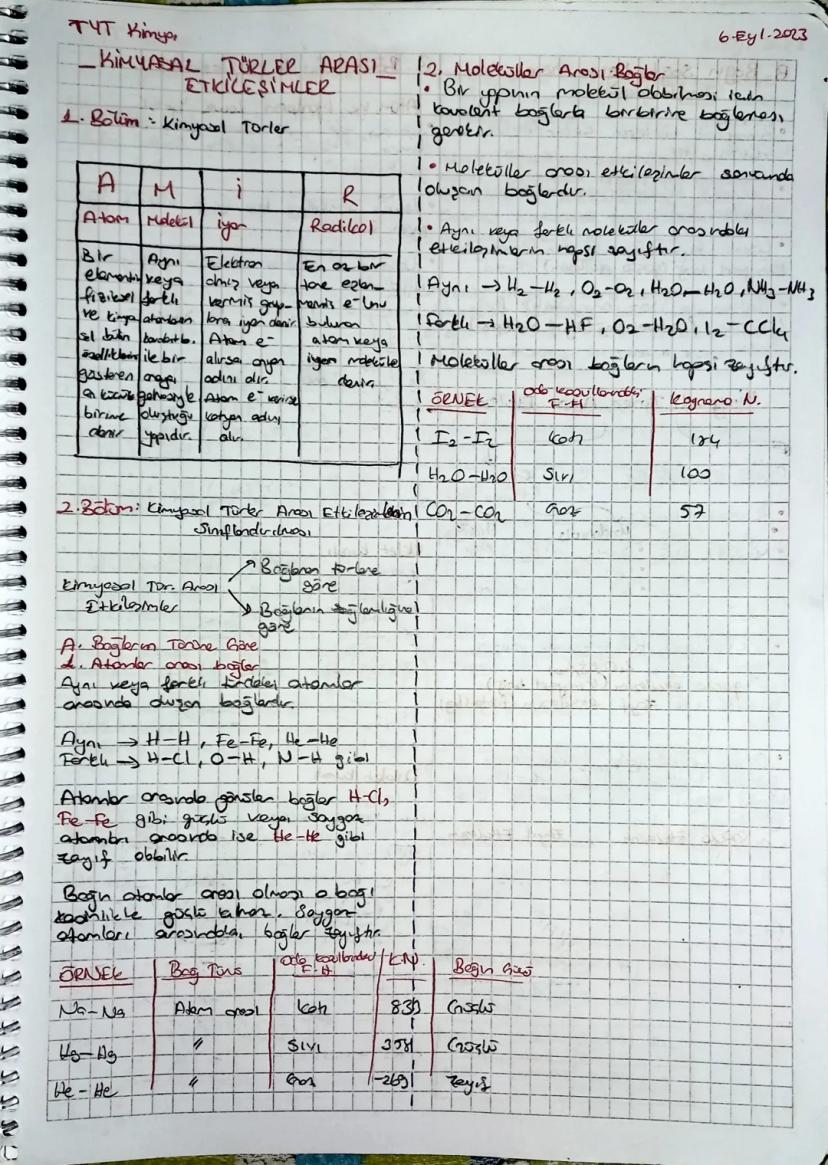 TYT Kimya
6-Eyl-2023
KİMYASAL TÜRLER ARASI
ETKİLEŞİMLER
1. Bölüm: Kimyasal Türler
A M İ R
Atom Molekül İyon Radikal
Bir
elementin
fiziksel
ve kimya
sal bütün
özellikleri
gösteren
en küçük
birime
denir
Aynı
veya
farklı
atomların
ile bir
araya
gelmesiyle
oluştuğu
yapıdır.
Elektron
almış veya
vermiş grup-
lara iyon denir
Atom e-
alırsa anyon
adını alır.
Atom e- verirse
katyon adını
alır.
En az bir
tane eşlen-
memiş e- unu
bulunan
atom veya
iyon moleküle
denir.
2. Bölüm: Kimyasal Türler Arası Etkileşimlerin
Sınıflandırılması
Kimyasal Tür. Arası
Etkileşimler
Bağlanan türlere
göre
Bağların sağlamlığına
göre
A. Bağların Türüne Göre
1. Atomlar arası bağlar
Aynı veya farklı türdeki atomlar
arasında oluşan bağlardır.
Aynı → H-H, Fe-Fe, He-He
Farklı → H-Cl, O-H, N-H gibi
Atomlar arasında görülen bağlar H-Cl,
Fe-Fe gibi güçlü veya soygaz
atomları arasında ise He-He gibi
zayıf olabilir.
Bağın atomlar arası olması o bağı
kesinlikle güçlü kılmaz. Soygaz
atomları arasındaki bağlar zayıftır.
ÖRNEK Bağ Türü Oda koşullarındaki F-H K.N. Bağın Gücü
Na-Na Atom arası Katı 883 Güçlü
Hg-Hg " Sıvı Güçlü
He-He " Gaz -269 Zayıf
2. Moleküller Arası Bağlar
• Bir yapının molekül olabilmesi için
kovalent bağlarla birbirine bağlanması
gerekir.
• Moleküller arası etkileşimler sonucunda
oluşan bağlardır.
• Aynı veya farklı moleküller arasındaki
etkileşimlerin hepsi zayıftır.
Aynı → H2-H2, O2-O2, H2O-H2O, NH3-NH3
Farklı → H2O-HF, O2-H2O, I2-CCl4
Moleküller arası bağların hepsi zayıftır.
ÖRNEK Oda koşullarındaki F-H Kaynama N.
I2-I2 Katı 184
H2O-H2O Sıvı 100
CO2-CO2 Gaz 57